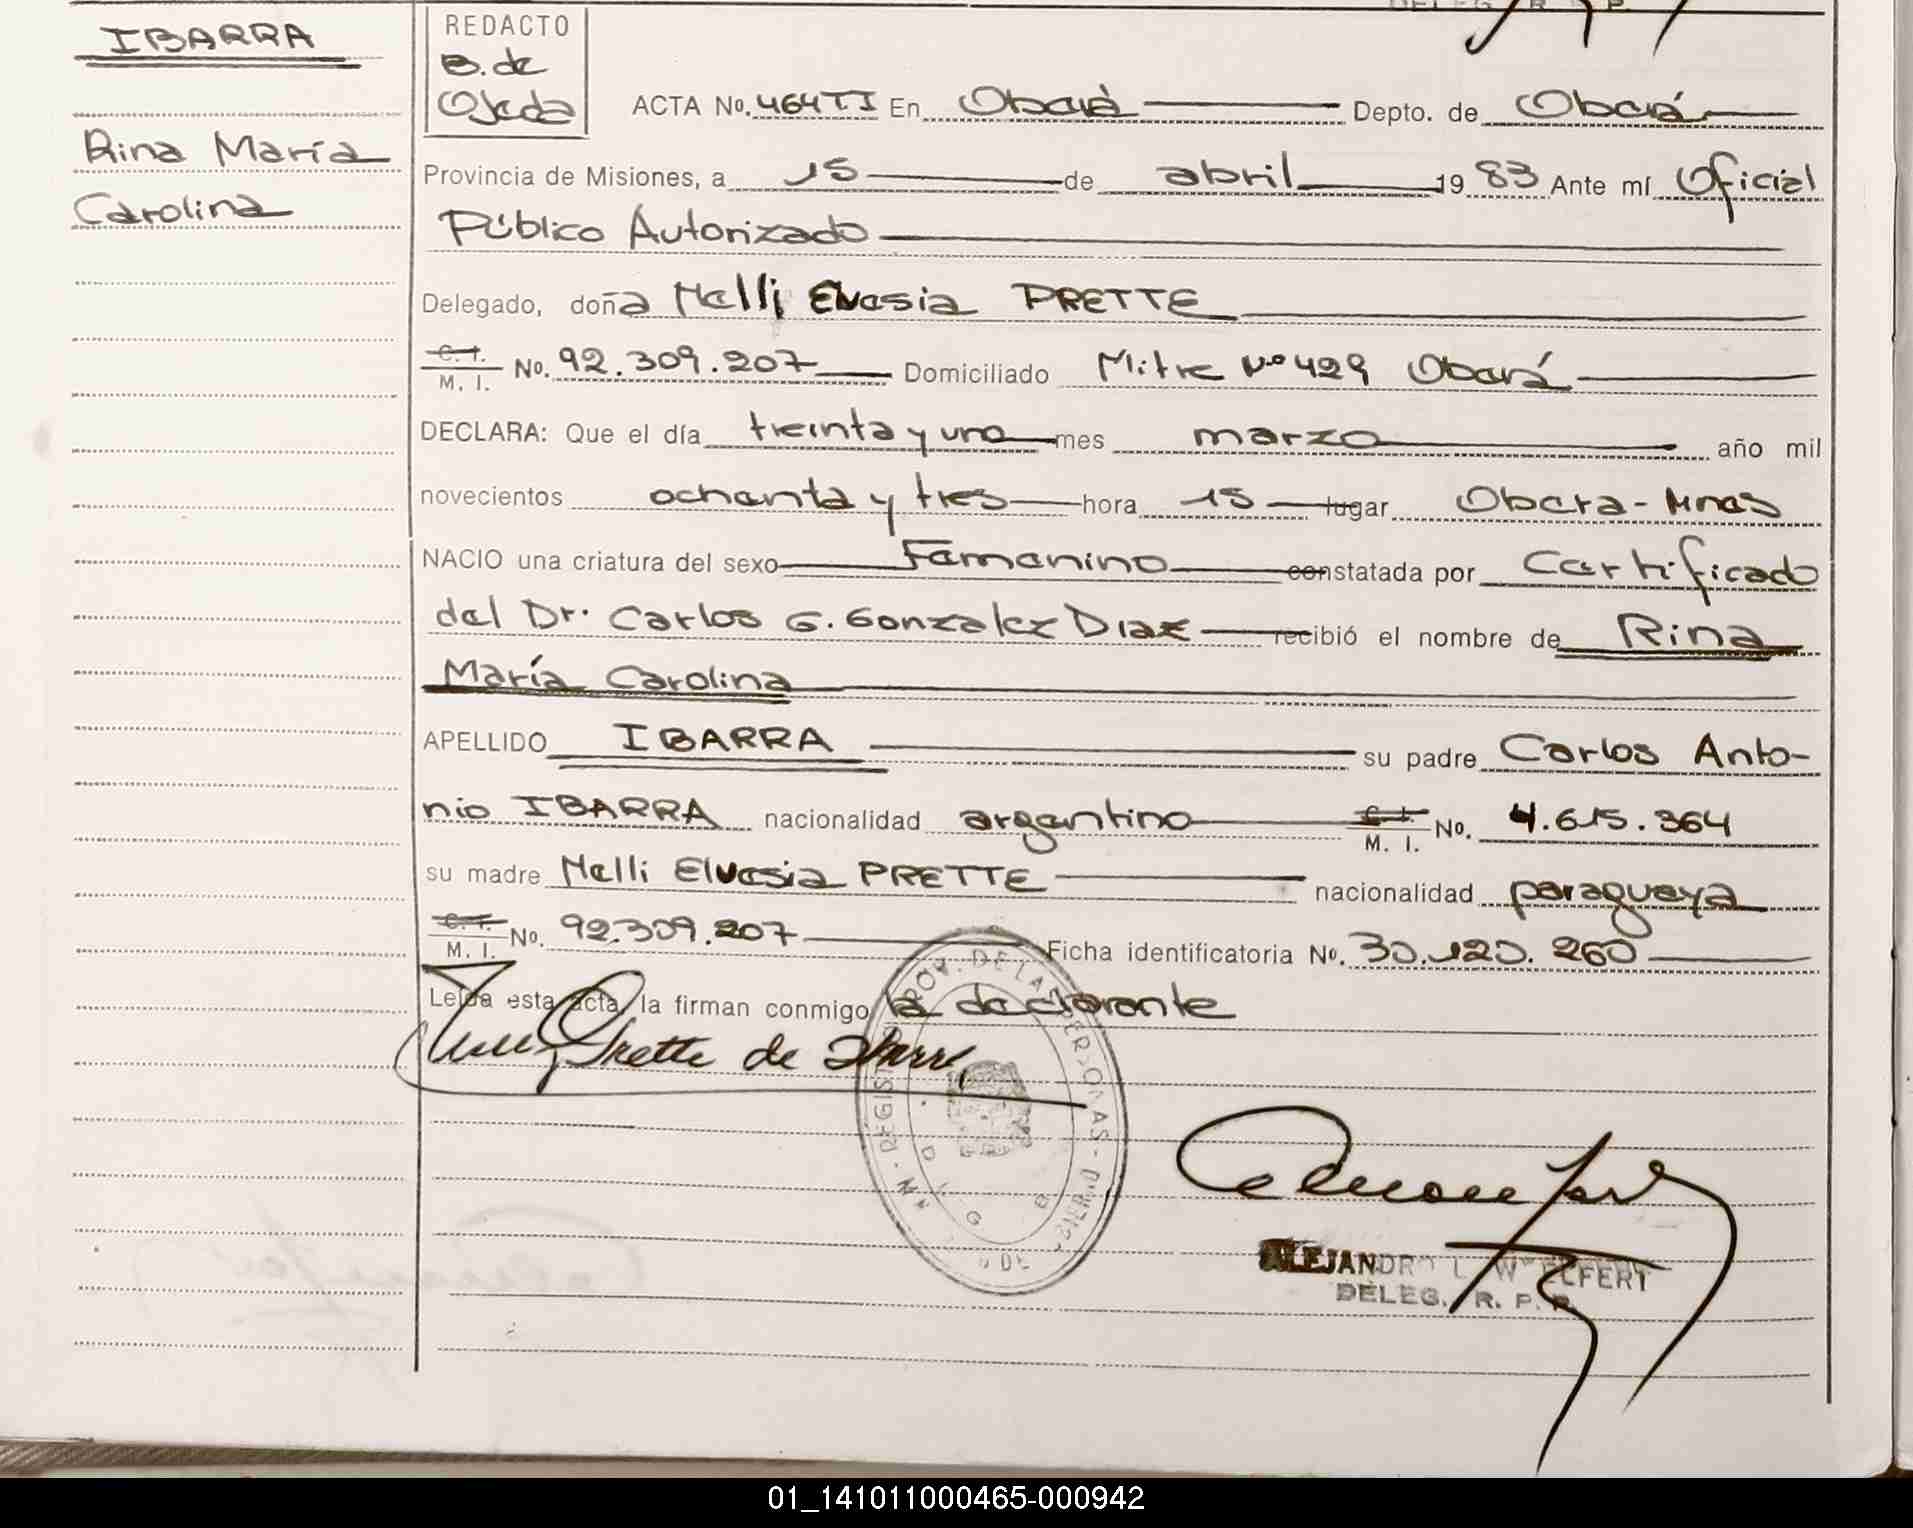 IBARRA
Rina María
Carolina
REDACTO
B. de
Ojeda
ACTA No. 464 TI En Oberá Depto. de Oberá
Provincia de Misiones, a 15 de abril 19 83 Ante mí Oficial
Público Autorizado
Delegado, doña Nelli Elvesia PRETTE
C. I.
M. I. No. 92.309.207 Domiciliado Mitre Nº 429 Oberá
DECLARA: Que el día treinta y uno mes marzo año mil
novecientos ochenta y tres hora 15 lugar Obera-Mnes
NACIO una criatura del sexo Femenino constatada por Certificado
del Dr. Carlos G. Gonzalez Diaz recibió el nombre de Rina
María Carolina
APELLIDO IBARRA su padre Carlos Anto-
nio IBARRA nacionalidad argentino C. I. M. I. No. 4.615.364
su madre Nelli Elvesia PRETTE nacionalidad paraguaya
C. I.
M. I. No. 92.309.207 Ficha identificatoria No. 30.120.260
Leída esta acta, la firman conmigo la declarante
Prette de Ibarra
DE LAS PERSONAS
ALEJANDRO L. W ELFERT
DELEG. R. P. P.
01_141011000465-000942